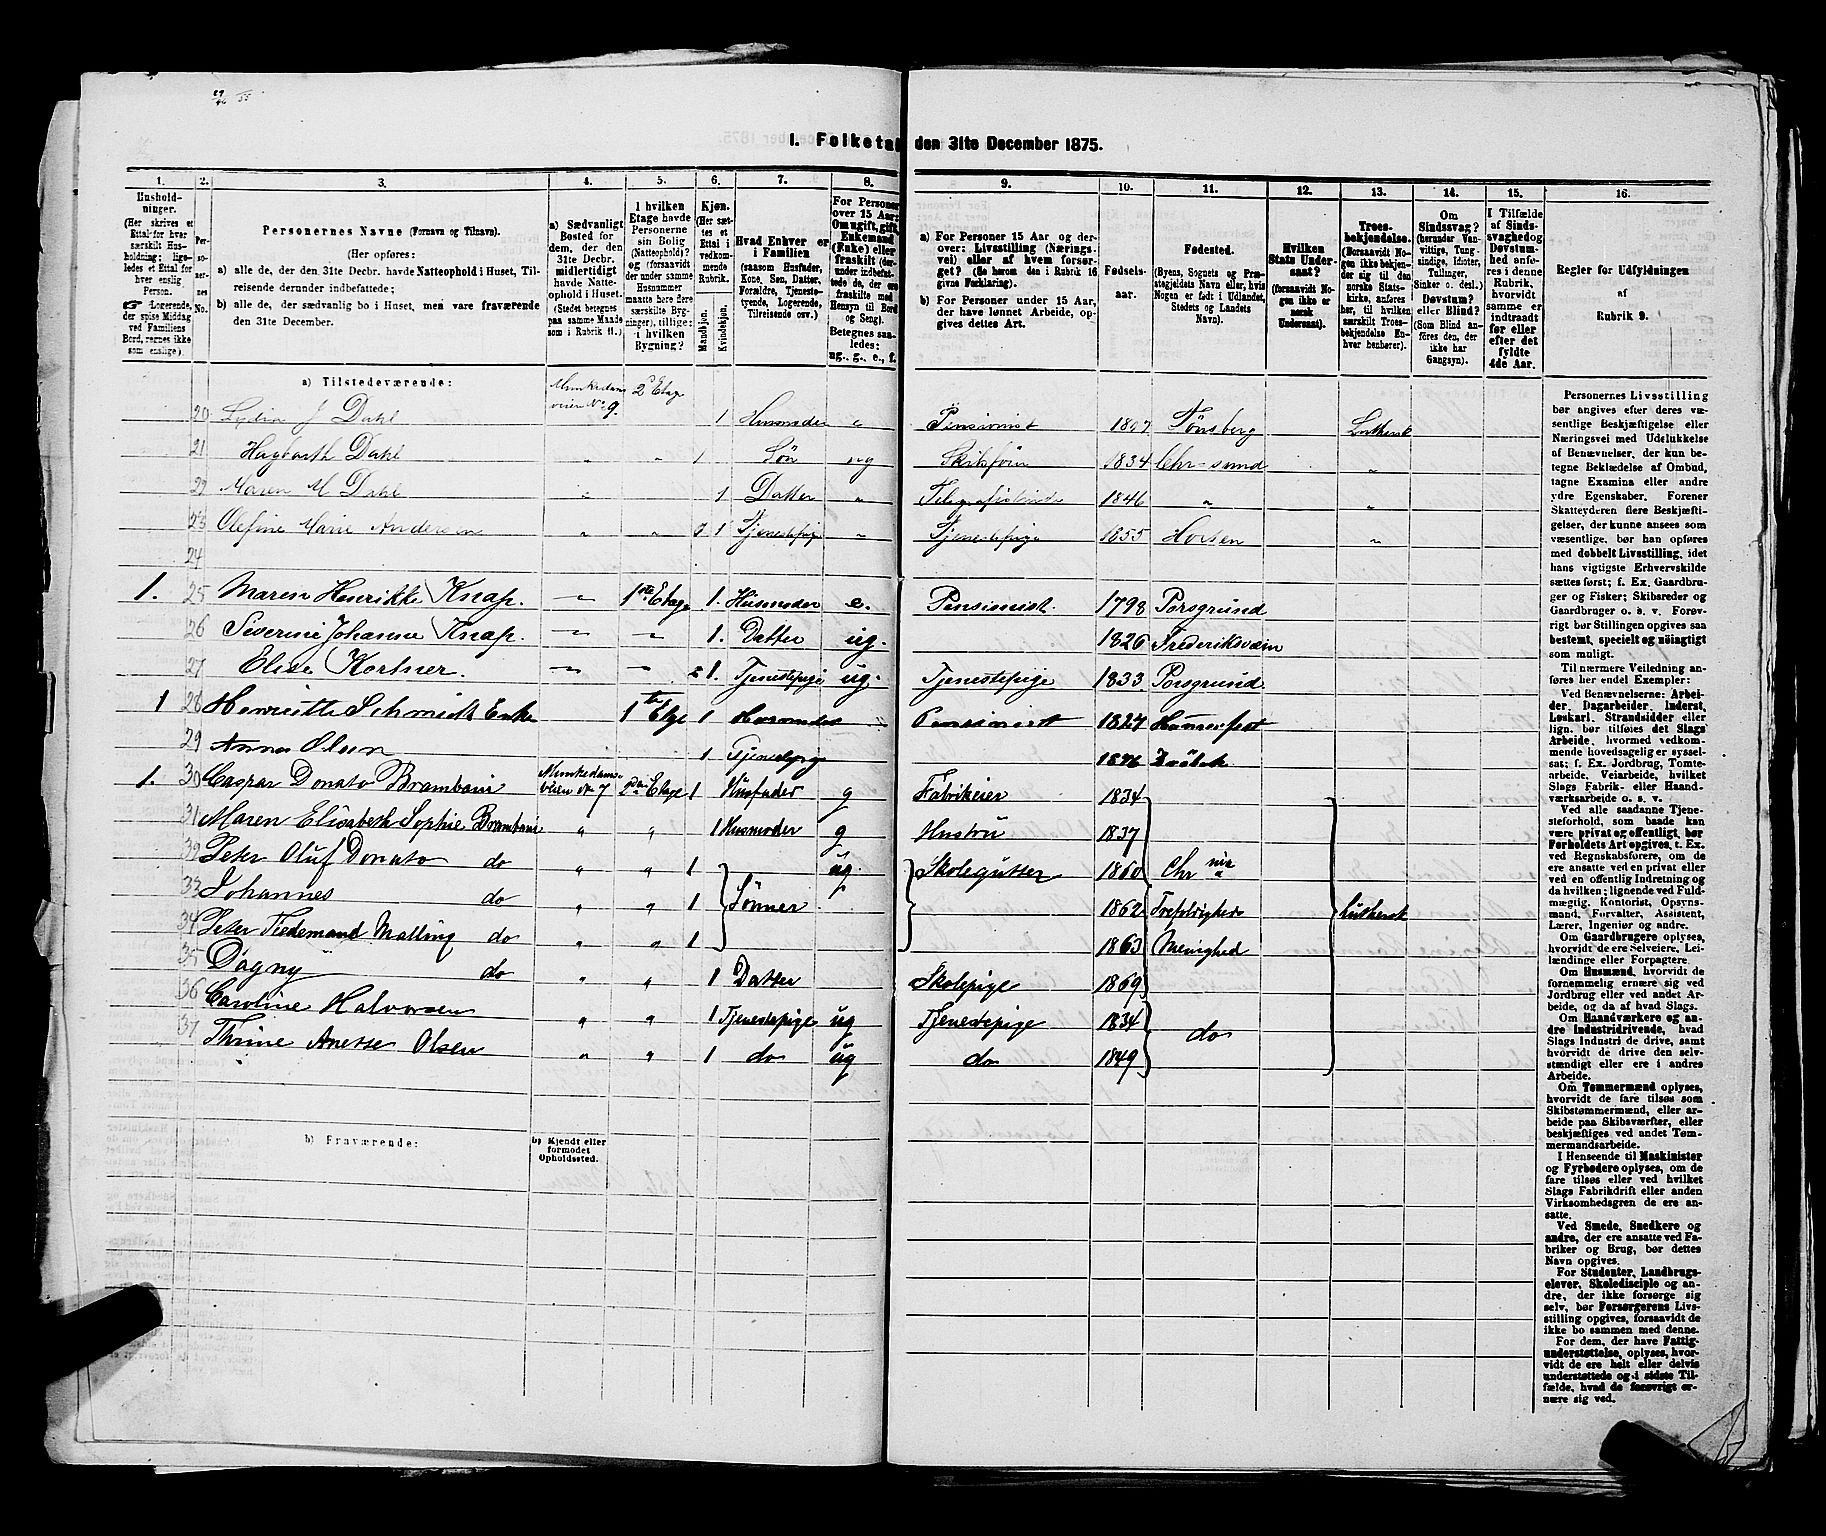 29/46 55
1. Folketal den 31te December 1875.
1. 2. 3. 4. 5. 6. 7. 8. 9. 10. 11. 12. 13. 14. 15. 16.
Husholdninger. (Her skrives et Ettal for hver særskilt Husholdning; ligeledes et Ettal for hver enslig Person. ☞ Logerende, der spise Middag ved Familiens Bord, regnes ikke som enslige).
Personernes No.
Personernes Navne (Fornavn og Tilnavn).
(Her opføres:
a) alle de, der den 31te Decbr. havde Natteophold i Huset, Tilreisende derunder indbefattede;
b) alle de, der sædvanlig bo i Huset, men vare fraværende den 31te December.
a) Sædvanligt Bosted for dem, der den 31te Decbr. midlertidigt havde Natteophold i Huset. (Stedet betegnes paa samme Maade som i Rubrik 11.)
I hvilken Etage havde Personerne sin Bolig (Natteophold)? og (forsaavidt der under samme Husnummer maatte høre flere særskilte Bygninger), tillige: i hvilken Bygning?
Kjøn. (Her sættes et Ettal i vedkommende Rubrik. Mandkjøn. Kvindekjøn.
Hvad Enhver er i Familien (saasom Husfader, Kone, Søn, Datter, Forældre, Tjenestetyende, Logerende, Tilreisende osv.)
For Personer over 15 Aar: Om ugift, gift, Enkemand (Enke) eller fraskilt (derunder indbefattede de, der ere fraskilte med Hensyn til Bord og Seng). Betegnes saaledes: ug., g., e., f.
a) For Personer 15 Aar og derover: Livsstilling (Næringsvei) eller af hvem forsørget? (Se herom den i Rubrik 16 givne Forklaring).
b) For Personer under 15 Aar, der have lønnet Arbeide, opgives dettes Art.
Fødselsaar.
Fødested. (Byens, Sognets og Præstegjeldets Navn eller, hvis Nogen er født i Udlandet, Stedets og Landets Navn).
Hvilken Stats Undersaat? (forsaavidt Nogen ikke er norsk Undersaat).
Troesbekjendelse. (Forsaavidt Nogen ikke bekjender sig til den norske Statskirke, anføres her, til hvilken særskilt Troesbekjendelse Enhver henhører).
Om Sindssvag? (herunder Vanvittige, Tungsindige, Idioter, Tullinger, Sinker o. desl.) Døvstum? eller Blind? (Som Blind anføres den, der ikke har Gangsyn).
I Tilfælde af Sindssvaghed og Døvstumhed anføres i denne Rubrik, hvorvidt samme er indtraadt før eller efter det fyldte 4de Aar.
Regler for Udfyldningen af Rubrik 9.
a) Tilstedeværende: Munkedamsveien No 9. 2d Etage
20 Lydia J Dahl 1 Husmoder " Pensionist 1807 Tønsberg Luthersk
21 Hagbarth Dahl " " 1 Søn ug Skibsfører 1834 Chr-sund "
22 Maren M Dahl " 1 Datter " 1846 " "
23 Olefine Marie Andersen " " 1 Tjenestepige " Tjenestepige 1855 Horten "
24
1. 25 Maren Henrikke Knap. " 1ste Etage 1. Husmoder e. Pensionist. 1798 Porsgrund
26 Severine Johanne Knap. " " 1. Datter ug. 1826 Frederiksværn
27 Elise Kortner. " " 1. Tjenestepige ug. Tjenestepige 1833 Porsgrund
1 28 Henriette Schmidt Enke 1ste Etge 1 Husmoder " Pensionist 1827 Hammerfest
29 Anna Olsen 1 Tjenestepige 1846 Drøbak
1. 30 Caspar Donato Brambani Munkedamsveien No 7 2den Etage 1 Husfader g Fabrikeier 1834
31 Maren Elisabeth Sophie Brambani " " 1 Husmoder g Hustru 1837
32 Peter Oluf Donato do " " 1 ug Skolegutter 1860 Chr nia
33 Johannes do " " 1 Sønner " 1862 Trefoldigheds Luthersk
34 Peter Tiedemand Malling do " " 1 1863 Menighed
35 Dagny do 1 Datter Skolepige 1869
36 Caroline Halvorsen " " 1 Tjenestepige ug Tjenestepige 1834 do
37 Thrine Anette Olsen " " 1 do ug do 1849
b) Fraværende: b) Kjendt eller formodet Opholdssted.
Personernes Livsstilling
bør angives efter deres væ-
sentlige Beskjæftigelse eller
Næringsvei med Udelukkelse
af Benævnelser, der kun be-
tegne Beklædelse af Ombud,
tagne Examina eller andre
ydre Egenskaber. Forener
Skatteyderen flere Beskjæfti-
gelser, der kunne ansees som
væsentlige, bør han opføres
med dobbelt Livsstilling, idet
hans vigtigste Erhvervskilde
sættes først; f. Ex. Gaardbru-
ger og Fisker; Skibsreder og
Gaardbruger o. s. v. Forøv-
rigt bør Stillingen opgives saa
bestemt, specielt og nøiagtigt
som muligt.
Til nærmere Veiledning an-
føres her endel Exempler:
Ved Benævnelserne: Arbei-
der, Dagarbeider, Inderst,
Løskarl, Strandsidder eller
lign. bør tilføies det Slags
Arbeide, hvormed vedkom-
mende hovedsagelig er syssel-
sat; f. Ex. Jordbrug, Tomte-
arbeide, Veiarbeide, hvilket
Slags Fabrik- eller Haand-
værksarbeide o. s. v.
Ved alle saadanne Tjene-
steforhold, som baade kan
være privat og offentligt, bør
Forholdets Art opgives, t. Ex.
ved Regnskabsførere, om de
ere ansatte ved en privat eller
ved en offentlig Indretning og
da hvilken; lignende ved Fuld-
mægtig, Kontorist, Opsyns-
mand, Forvalter, Assistent,
Lærer, Ingeniør og andre.
Om Gaardbrugere oplyses,
hvorvidt de ere Selveiere, Lei-
lændinge eller Forpagtere.
Om Husmænd, hvorvidt de
fornemmelig ernære sig ved
Jordbrug eller ved andet Ar-
beide, og da af hvad Slags.
Om Haandværkere og an-
dre Industridrivende, hvad
Slags Industri de drive, samt
hvorvidt de drive den selv-
stændigt eller ere i andres
Arbeide.
Om Tømmermænd oplyses,
hvorvidt de fare tilsøs som
Skibstømmermænd, eller ar-
beide paa Skibsværfter, eller
beskjæftiges ved andet Tøm-
mermandsarbeide.
I Henseende til Maskinister
og Fyrbødere oplyses, om de
fare tilsøs eller ved hvilket
Slags Fabrikdrift eller anden
Virksomhedsgren de ere an-
satte.
Ved Smede, Snedkere og
andre, der ere ansatte ved Fa-
briker og Brug, bør dettes
Navn opgives.
For Studenter, Landbrugs-
elever, Skoledisciple og an-
dre, der ikke forsørge sig
selv, bør Forsørgerens Livs-
stilling opgives, forsaavidt de
ikke bo sammen med denne.
For dem, der have Fattig-
understøttelse, oplyses, hvor-
vidt de ere helt eller delvis
understøttede og i sidste Til-
fælde, hvad de forøvrigt er-
nære sig ved.